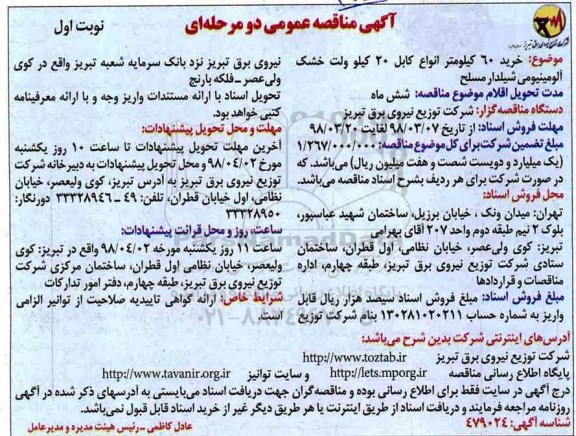 آگهی مناقصه عمومی دو مرحله‌ای
نوبت اول
موضوع: خرید ۶۰ کیلومتر انواع کابل ۲۰ کیلو ولت خشک
آلومینیومی شیلدار مسلح
مدت تحویل اقلام موضوع مناقصه: شش ماه
دستگاه مناقصه‌گزار: شرکت توزیع نیروی برق تبریز
مهلت فروش اسناد: از تاریخ ۹۸/۰۳/۰۷ لغایت ۹۸/۰۳/۲۰
مبلغ تضمین شرکت برای کل موضوع مناقصه: ۱/۲۶۷/۰۰۰/۰۰۰
(یک میلیارد و دویست شصت و هفت میلیون ریال) می‌باشد. که
در صورت شرکت برای هر ردیف بشرح اسناد مناقصه می‌باشد.
محل فروش اسناد:
تهران: میدان ونک ، خیابان برزیل، ساختمان شهید عباسپور،
بلوک ۲ نیم طبقه دوم واحد ۲۰۷ آقای بهرامی
تبریز: کوی ولی‌عصر، خیابان نظامی، اول قطران، ساختمان
ستادی شرکت توزیع نیروی برق تبریز، طبقه چهارم، اداره
مناقصات و قراردادها
مبلغ فروش اسناد: مبلغ فروش اسناد سیصد هزار ریال قابل
واریز به شماره حساب ۱۳۰۲۸۱۰۲۰۲۱۱ بنام شرکت توزیع
نیروی برق تبریز نزد بانک سرمایه شعبه تبریز واقع در کوی
ولی‌عصر – فلکه بارنج
تحویل اسناد با ارائه مستندات واریز وجه و با ارائه معرفینامه
کتبی خواهد بود.
مهلت و محل تحویل پیشنهادات:
آخرین مهلت تحویل پیشنهادات تا ساعت ۱۰ روز یکشنبه
مورخ ۹۸/۰۴/۰۲ و محل تحویل پیشنهادات به دبیرخانه شرکت
توزیع نیروی برق تبریز به آدرس تبریز، کوی ولیعصر، خیابان
نظامی، اول خیابان قطران، تلفن: ۴۹ ـ ۳۳۳۲۸۹۴۶ دورنگار:
۳۳۳۲۸۹۵۰
ساعت، روز و محل قرائت پیشنهادات:
ساعت ۱۱ روز یکشنبه مورخه ۹۸/۰۴/۰۲ واقع در تبریز: کوی
ولیعصر، خیابان نظامی اول قطران، ساختمان مرکزی شرکت
توزیع نیروی برق تبریز، طبقه چهارم، دفتر امور تدارکات
شرایط خاص: ارائه گواهی تاییدیه صلاحیت از توانیر الزامی
است.
آدرس‌های اینترنتی شرکت بدین شرح می‌باشد:
شرکت توزیع نیروی برق تبریز http://www.toztab.ir
پایگاه اطلاع رسانی مناقصه http://iets.mporg.ir و سایت توانیر http://www.tavanir.org.ir
درج آگهی در سایت فقط برای اطلاع رسانی بوده و مناقصه‌گران جهت دریافت اسناد می‌بایستی به آدرسهای ذکر شده در آگهی
روزنامه مراجعه فرمایند و دریافت اسناد از طریق اینترنت یا هر طریق دیگر غیر از خرید اسناد قابل قبول نمی‌باشد.
شناسه آگهی: ۴۷۹۰۲۴
عادل کاظمی – رئیس هیئت مدیره و مدیرعامل